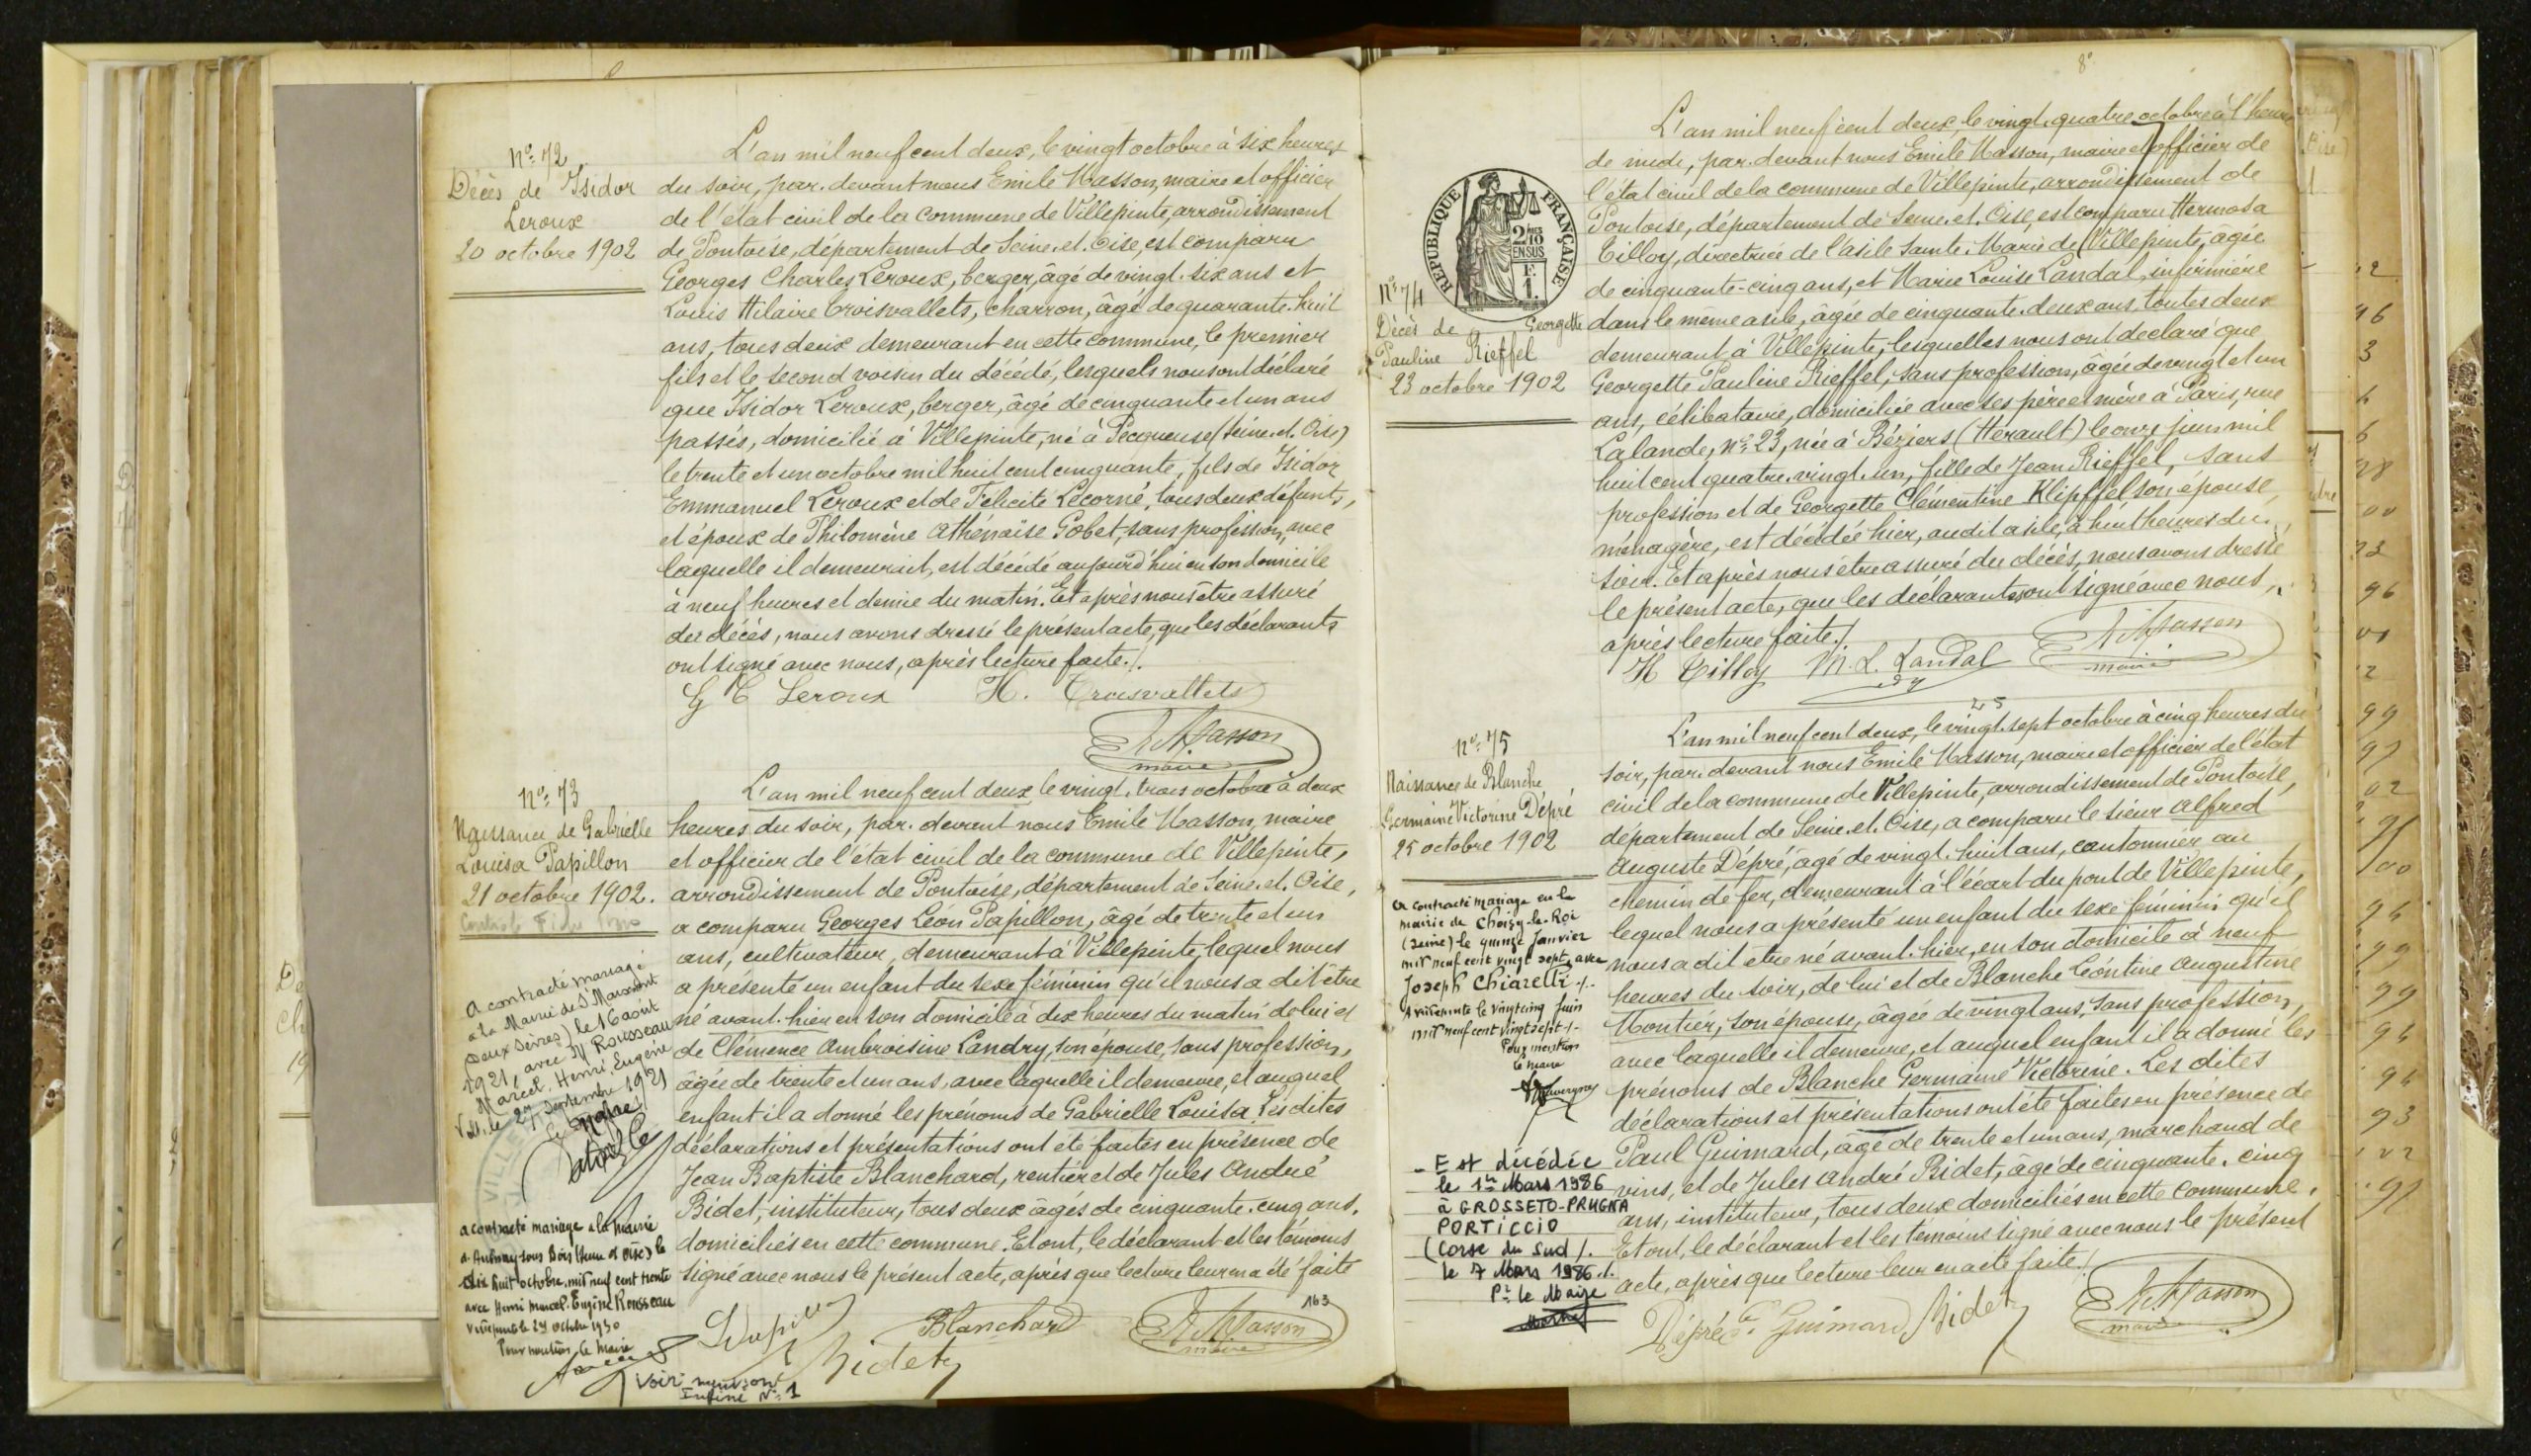 Nº 72
Décès de Isidor
Leroux
20 octobre 1902
L'an mil neuf cent deux, le vingt octobre à six heures
du soir, par-devant nous Emile Masson, maire et officier
de l'état civil de la commune de Villepinte, arrondissement
de Pontoise, département de Seine-et-Oise, est comparu
Georges Charles Leroux, berger, âgé de vingt-six ans et
Louis Hilaire Croisvallets, charron, âgé de quarante-huit
ans, tous deux demeurant en cette commune, le premier
fils et le second voisin du décédé, lesquels nous ont déclaré
que Isidor Leroux, berger, âgé de cinquante et un ans
passés, domicilié à Villepinte, né à Pecqueuse (Seine-et-Oise)
le trente et un octobre mil huit cent cinquante, fils de Isidor
Emmanuel Leroux et de Félicité Lecorné, tous deux défunts,
et époux de Philomène Athénaïse Gobet, sans profession, avec
laquelle il demeurait, est décédé aujourd'hui en son domicile
à neuf heures et demie du matin. Et après nous être assuré
du décès, nous avons dressé le présent acte, que les déclarants
ont signé avec nous, après lecture faite./.
G C Leroux H. Croisvallets
E Masson
maire
Nº 73
Naissance de Gabrielle
Louisa Papillon
21 octobre 1902.
L'an mil neuf cent deux, le vingt-trois octobre à deux
heures du soir, par-devant nous Emile Masson, maire
et officier de l'état civil de la commune de Villepinte,
arrondissement de Pontoise, département de Seine-et-Oise,
a comparu Georges Léon Papillon, âgé de trente et un
ans, cultivateur, demeurant à Villepinte, lequel nous
a présenté un enfant du sexe féminin qu'il nous a dit être
né avant-hier en son domicile à dix heures du matin de lui et
de Clémence Ambroisine Landry, son épouse, sans profession,
âgée de trente et un ans, avec laquelle il demeure, et auquel
enfant il a donné les prénoms de Gabrielle Louisa. Les dites
déclarations et présentations ont été faites en présence de
Jean Baptiste Blanchard, rentier et de Jules André
Bidet, instituteur, tous deux âgés de cinquante-cinq ans,
domiciliés en cette commune. Et ont, le déclarant et les témoins
signé avec nous le présent acte, après que lecture leur en a été faite
Blanchard
E Masson
maire
Bidet
163
A contracté mariage
à la Mairie de St Maixent
(Deux Sèvres) le 16 août
1921, avec M Rousseau
Marcel, Henri, Eugène
Vill. le 27 Septembre 1921
Le Maire
VILLE
a contracté mariage à la Mairie
d'Aulnay-sous-Bois (Seine et Oise) le
dix huit octobre mil neuf cent trente
avec Henri Marcel Eugène Rousseau
Villepinte le 29 Octobre 1930
Pour mention, le Maire
Voir mention
Infine Nº 1
8º
REPUBLIQUE FRANÇAISE
2/10
EN SUS
Nº 74
Décès de Georgette
Pauline Rieffel
23 octobre 1902
L'an mil neuf cent deux, le vingt-quatre octobre à l'heure
de midi, par-devant nous Emile Masson, maire et officier de
l'état civil de la commune de Villepinte, arrondissement de
Pontoise, département de Seine-et-Oise, est comparu Hermosa
Tilloy, directrice de l'asile Sainte-Marie de Villepinte, âgée
de cinquante-cinq ans, et Marie Louise Landal, infirmière
dans le même asile, âgée de cinquante-deux ans, toutes deux
demeurant à Villepinte, lesquelles nous ont déclaré que
Georgette Pauline Rieffel, sans profession, âgée de vingt et un
ans, célibataire, domiciliée avec ses père et mère à Paris, rue
Lalande, nº 23, née à Béziers (Hérault) le onze juin mil
huit cent quatre-vingt-un, fille de Jean Rieffel, sans
profession et de Georgette Clémentine Klipffel son épouse,
ménagère, est décédée hier, audit asile, à huit heures du
soir. Et après nous être assuré du décès, nous avons dressé
le présent acte, que les déclarantes ont signé avec nous,
après lecture faite./.
H Tilloy M. L. Landal E Masson
maire
Nº 75
Naissance de Blanche
Germaine Victorine Dépré
25 octobre 1902
L'an mil neuf cent deux, le vingt-sept octobre à cinq heures du
soir, par-devant nous Emile Masson, maire et officier de l'état
civil de la commune de Villepinte, arrondissement de Pontoise,
département de Seine-et-Oise, a comparu le sieur Alfred
Auguste Dépré, âgé de vingt-huit ans, cantonnier au
chemin de fer, demeurant à l'écart du pont de Villepinte,
lequel nous a présenté un enfant du sexe féminin qu'il
nous a dit être né avant-hier, en son domicile à neuf
heures du soir, de lui et de Blanche Léontine Augustine
Montier, son épouse, âgée de vingt ans, sans profession,
avec laquelle il demeure, et auquel enfant il a donné les
prénoms de Blanche Germaine Victorine. Les dites
déclarations et présentations ont été faites en présence de
Paul Guimard, âgé de trente et un ans, marchand de
vins, et de Jules André Bidet, âgé de cinquante-cinq
ans, instituteur, tous deux domiciliés en cette commune.
Et ont, le déclarant et les témoins signé avec nous le présent
acte, après que lecture leur en a été faite./.
Dépré Guimard Bidet E Masson
maire
A contracté mariage en la
mairie de Choisy-le-Roi
(Seine) le quinze Janvier
mil neuf cent vingt sept, avec
Joseph Chiarelli ./.
Villepinte le vingt cinq Juin
mil neuf cent vingt sept ./.
Pour mention
le Maire
Est décédée
le 1er Mars 1986
à GROSSETO-PRUGNA
PORTICCIO
(Corse du Sud)./.
le 7 Mars 1986./.
Pr le Maire